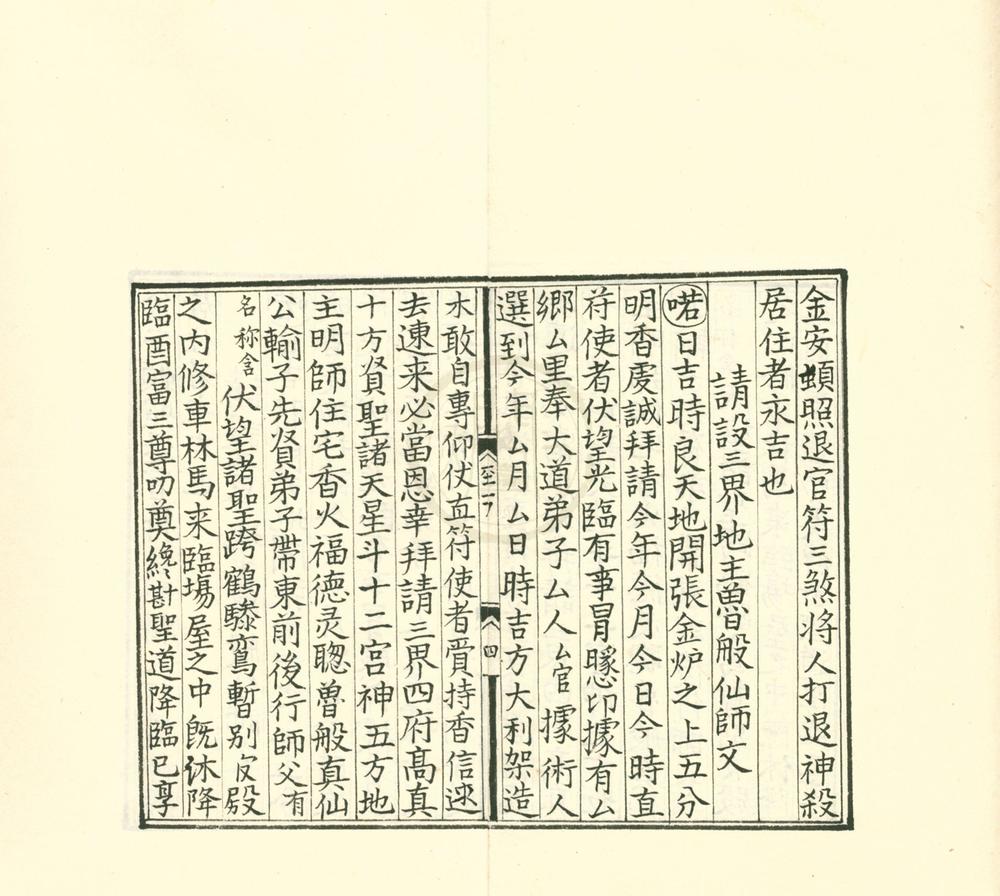 金安頓照退官符三煞将人打退神殺
居住者永吉也
請設三界地主魯般仙師文
喏日吉時良天地開張金炉之上五分
明香虔誠拜請今年今月今日今時直
苻使者伏望光臨有事冐懇印據有厶
郷厶里奉大道弟子厶人厶官據術人
選到今年厶月厶日時吉方大利架造
木敢自専仰仗直符使者賫持香信速
去速来必當恩幸拜請三界四府髙真
十方賢聖諸天星斗十二宫神五方地
主明師住宅香火福徳灵聰魯般真仙
公輸子先賢弟子帶東前後行師父有
名称含
伏望諸聖跨鶴驂鸞暫别殿
之内修車林馬来臨塲屋之中既沐降
臨酉富三尊叨奠纔斟聖道降臨已享
四